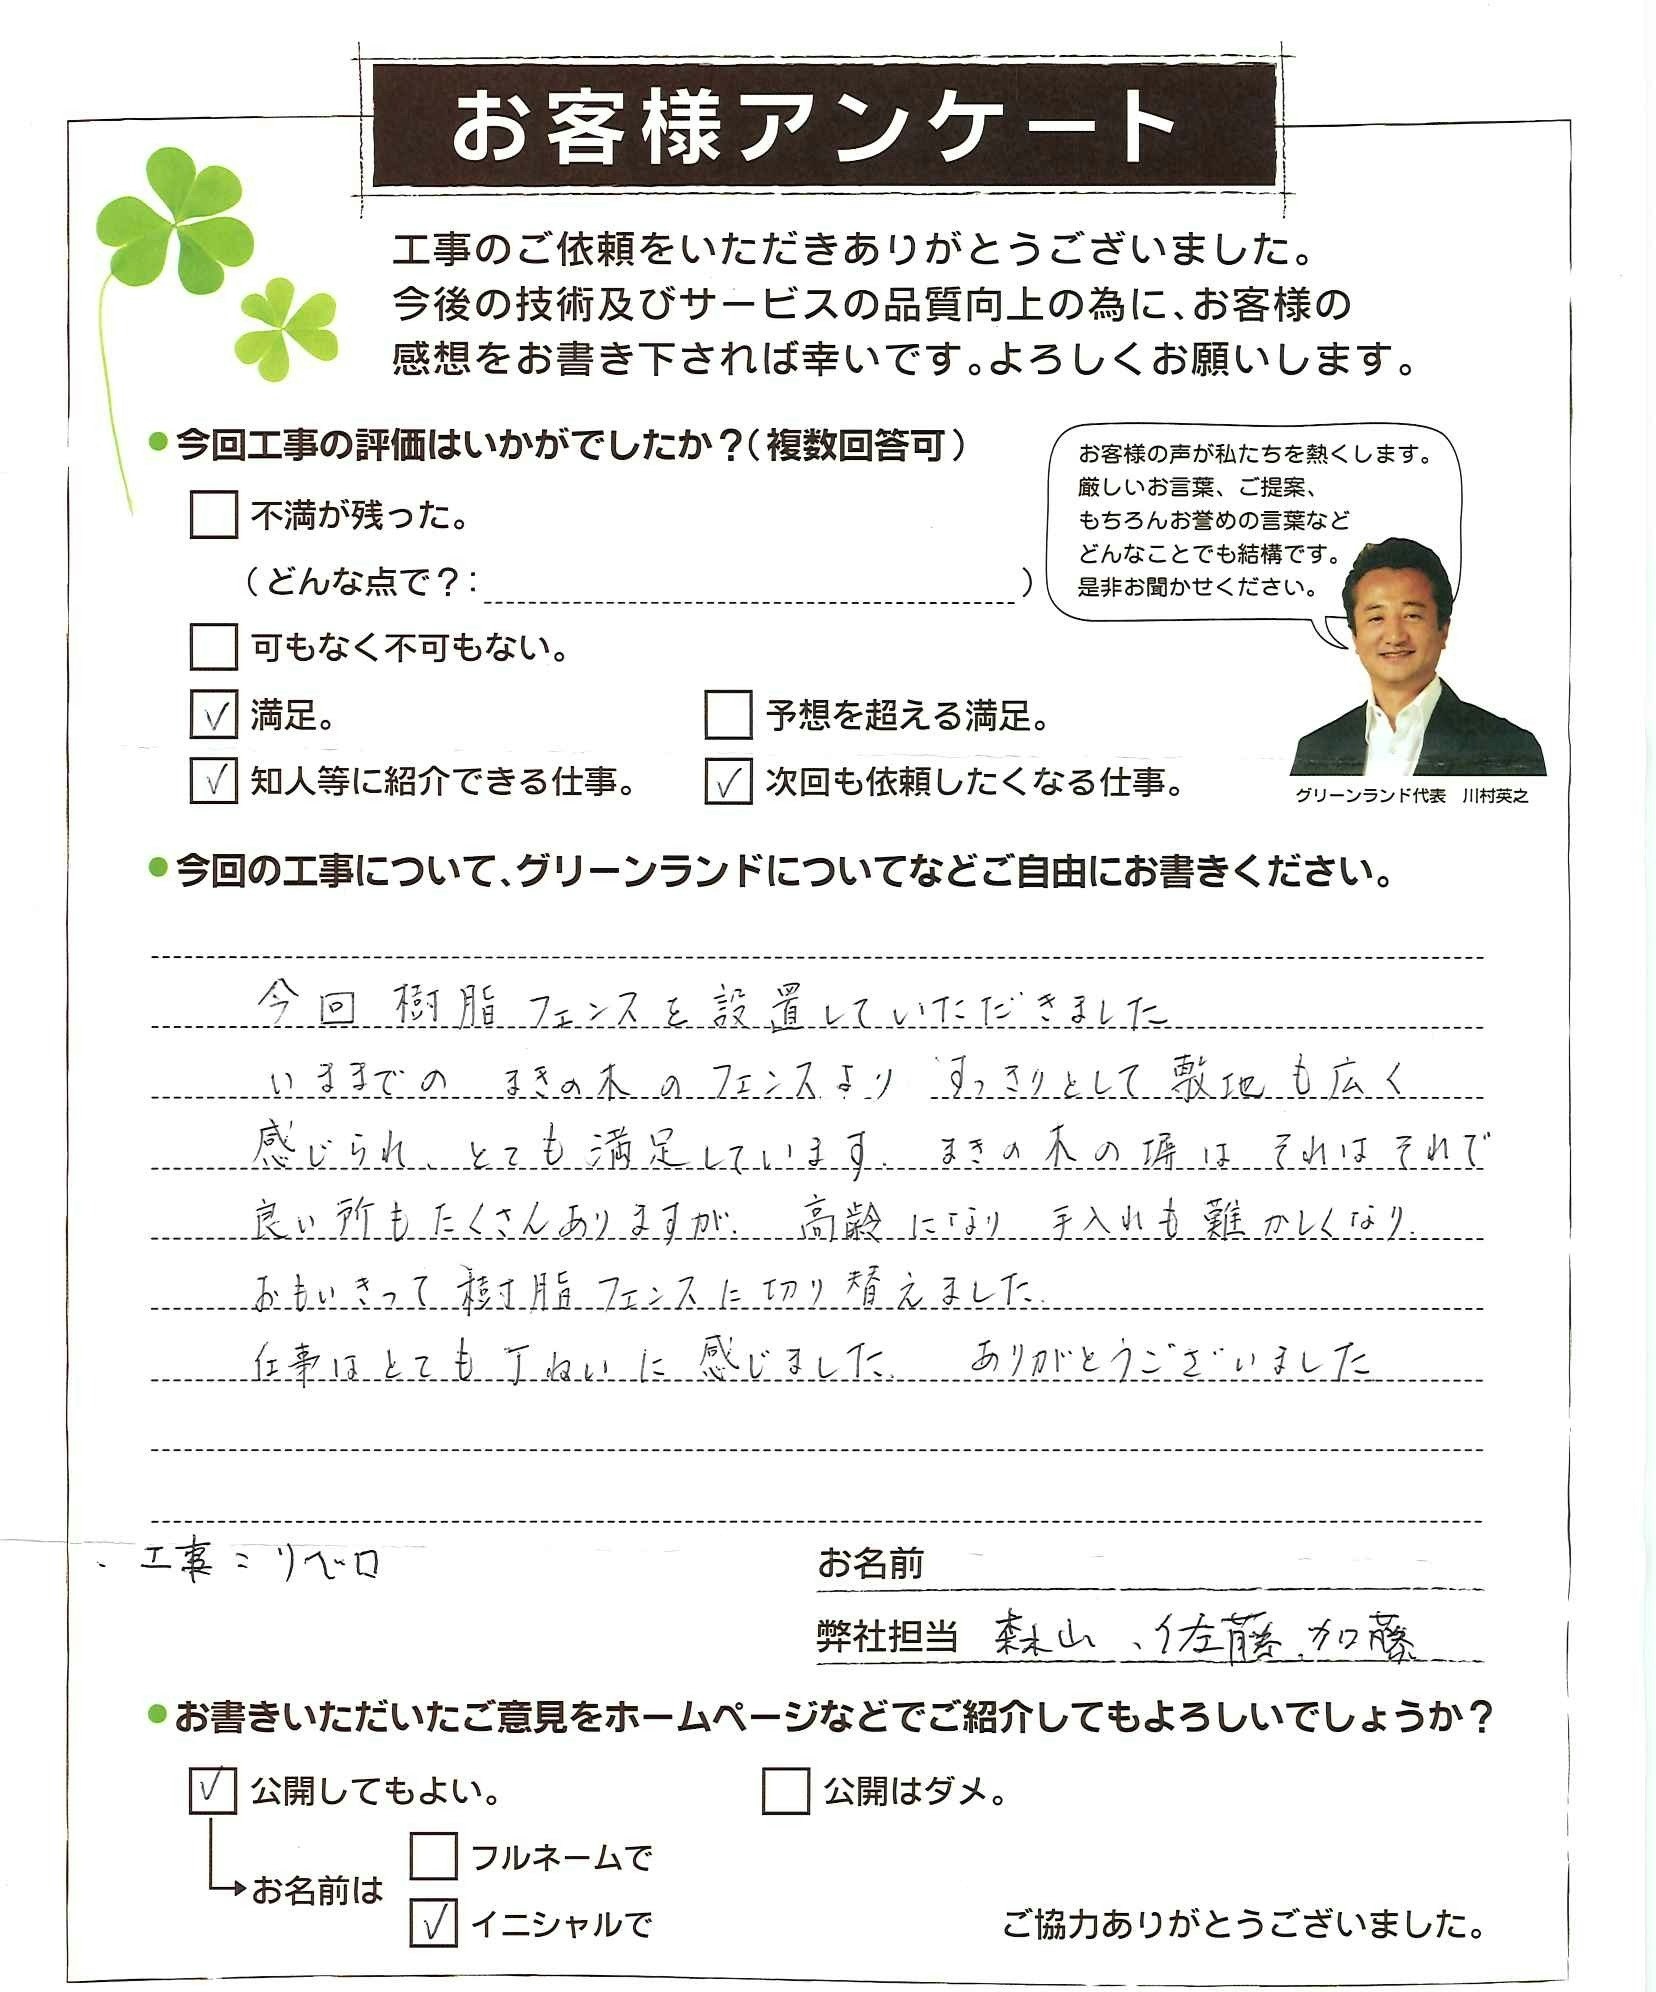 お客様アンケート
工事のご依頼をいただきありがとうございました。
今後の技術及びサービスの品質向上の為に、お客様の
感想をお書き下されば幸いです。よろしくお願いします。
●今回工事の評価はいかがでしたか？（複数回答可）
お客様の声が私たちを熱くします。
厳しいお言葉、ご提案、
もちろんお誉めの言葉など
どんなことでも結構です。
是非お聞かせください。
□ 不満が残った。
（どんな点で？： ）
□ 可もなく不可もない。
☑ 満足。 □ 予想を超える満足。
☑ 知人等に紹介できる仕事。 ☑ 次回も依頼したくなる仕事。
グリーンランド代表 川村英之
●今回の工事について、グリーンランドについてなどご自由にお書きください。
今回 樹脂フェンスを設置していただきました
いままでの まきの木のフェンスより すっきりとして敷地も広く
感じられ、とても満足しています. まきの木の塀は それはそれで
良い所もたくさんありますが. 高齢になり 手入れも難かしくなり.
おもいきって樹脂フェンスに切り替えました.
仕事はとても丁ねいに 感じました. ありがとうございました
、工事：リベロ
お名前
弊社担当 森山、佐藤、加藤
●お書きいただいたご意見をホームページなどでご紹介してもよろしいでしょうか？
☑ 公開してもよい。 □ 公開はダメ。
お名前は
□ フルネームで
☑ イニシャルで
ご協力ありがとうございました。